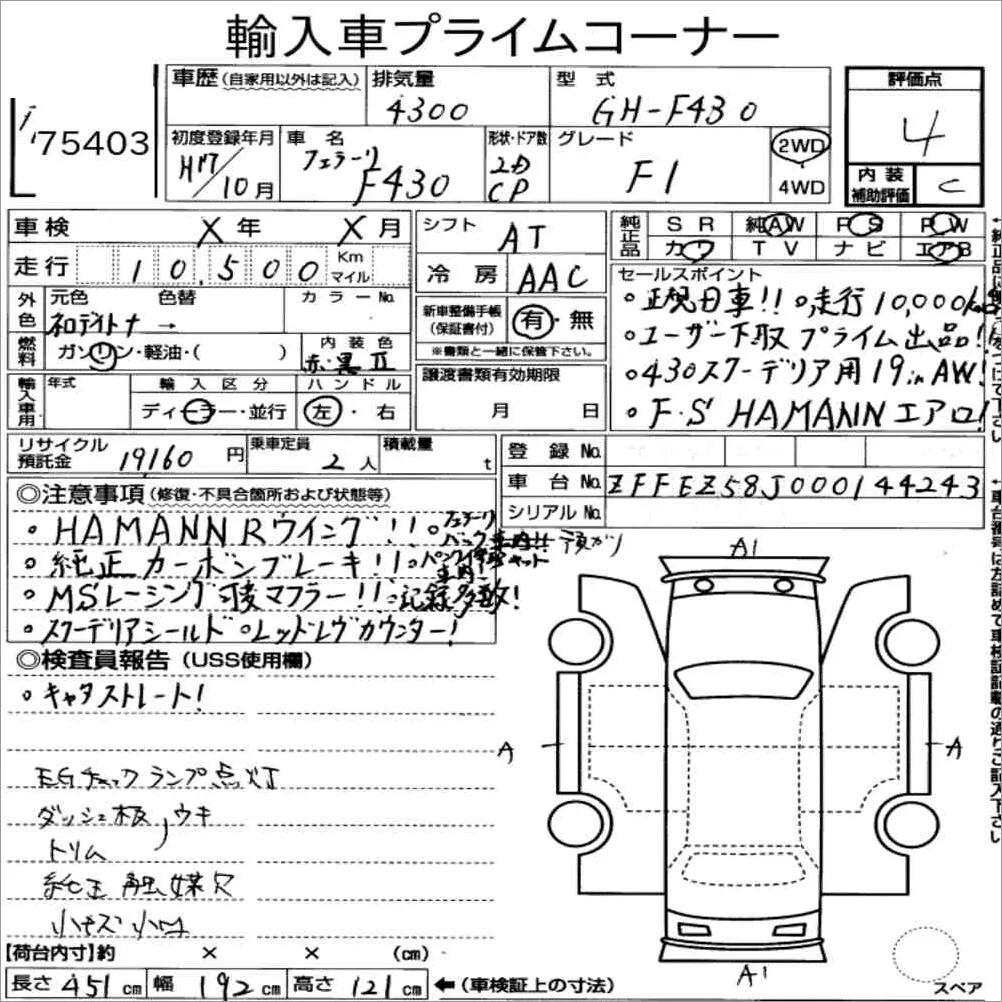 輸入車プライムコーナー
75403
車歴(自家用以外は記入)
排気量
4300
型式
GH-F430
評価点
4
初度登録年月
H17/10月
車名
フェラーリ
F430
形状・ドア数
2D
CP
グレード
F1
2WD
4WD
内装
補助評価
C
車検 X年 X月
シフト
AT
純正品
SR 純AW PS PW
カワ TV ナビ エアB
走行 10,500 Km
マイル
冷房
AAC
セールスポイント
・正規D車!! ・走行10,000km
・ユーザー下取プライム出品!
・430スクーデリア用19inAW!
・F・S HAMANNエアロ!
外色
元色 色替 カラーNo.
ネロデイトナ →
新車整備手帳
(保証書付)
有・無
※書類と一緒に保管下さい。
燃料
ガソリン・軽油・( )
内装色
赤・黒Ⅱ
輸入車用
年式
輸入区分
ハンドル
ディーラー・並行
左・右
譲渡書類有効期限
月 日
リサイクル
預託金
19160円
乗車定員
2人
積載量
t
登録No.
車台No. ZFFEZ58J000144243
シリアルNo.
◎注意事項(修復・不具合箇所および状態等)
・HAMANN Rウイング!!
・フェラーリ
車内!! 預かり
・純正カーボンブレーキ!!
・MSレーシング可変マフラー!! ・記録多数!
・スクーデリアシールド ・レッドレヴカウンター!
◎検査員報告(USS使用欄)
・キャタストレート!
EGチェックランプ点灯
ダッシュ板、ウキ
トリム
純正触媒欠
小キズ小凹
A1
A
A
A1
【荷台内寸】約 × × (cm)
長さ451cm 幅192cm 高さ121cm ←(車検証上の寸法)
スペア